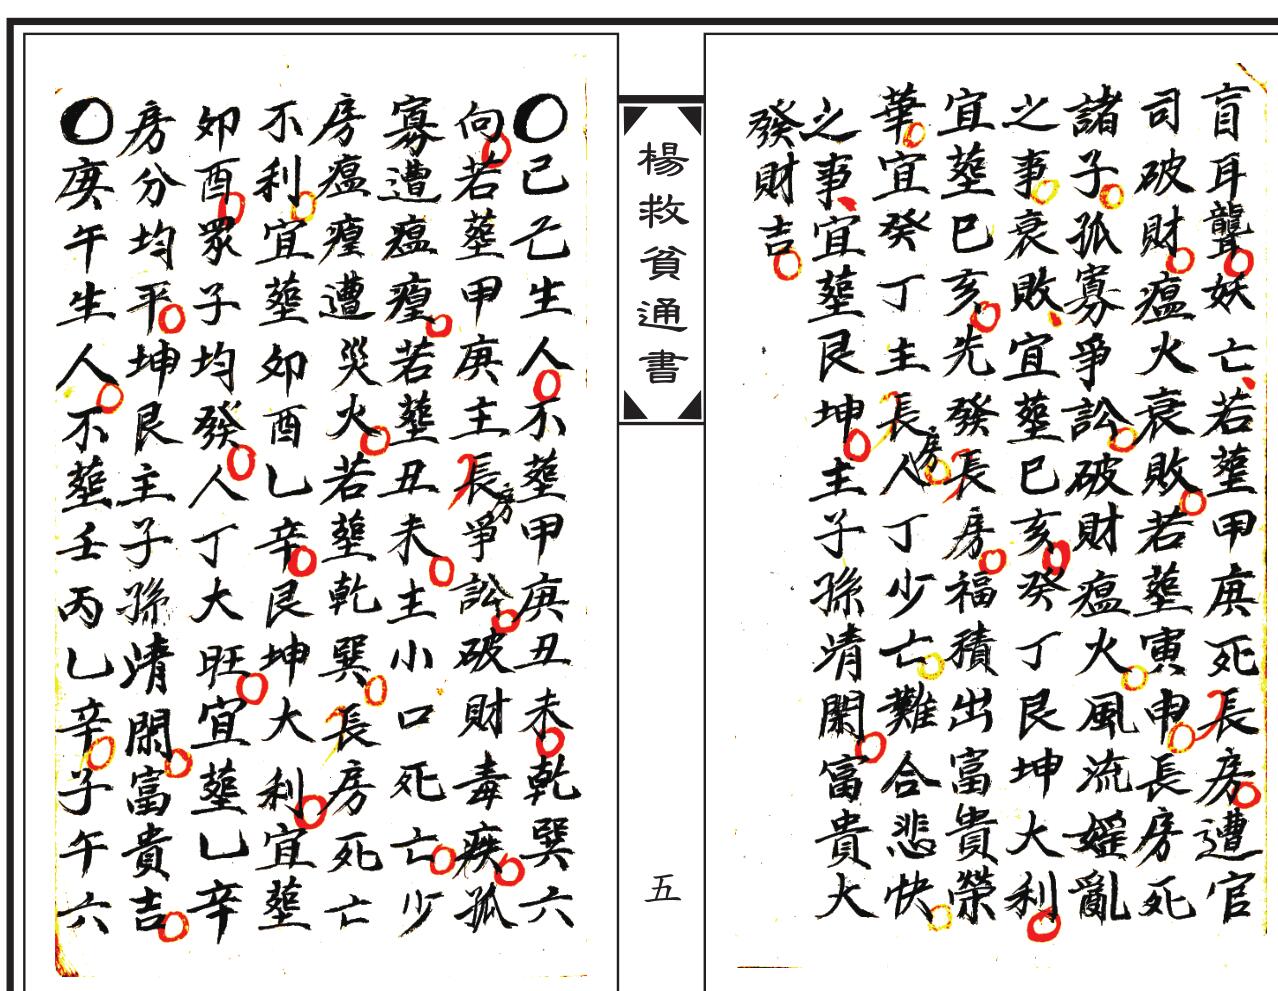 盲耳聾妖亡若塟甲庚死長房遭官
司破財瘟火衰敗若塟寅申長房死
諸子孤寡爭訟破財瘟火風流婬亂
之事衰敗宜塟巳亥癸丁艮坤大利
宜塟巳亥先發長房福積出富貴榮
華宜癸丁主長房人丁少亡難合悲快
之事宜塟艮坤主子孫清閑富貴大
發財吉
楊救貧通書
五
〇己亡生人不塟甲庚丑未乾巽六
向若塟甲庚主長房爭訟破財毒疾孤
寡遭瘟瘽若塟丑未主小口死亡少
房瘟瘽遭災火若塟乾巽長房死亡
不利宜塟卯酉乙辛艮坤大利宜塟
卯酉眾子均發人丁大旺宜塟乙辛
房分均平坤艮主子孫清閑富貴吉
〇庚午生人不塟壬丙乙辛子午六